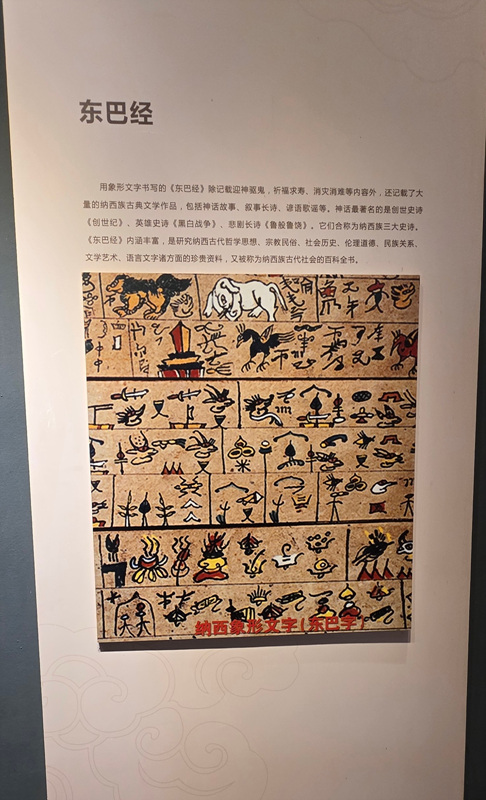 东巴经
用象形文字书写的《东巴经》除记载迎神驱鬼，祈福求寿、消灾消难等内容外，还记载了大
量的纳西族古典文学作品，包括神话故事、叙事长诗、谚语歌谣等。神话最著名的是创世史诗
《创世纪》、英雄史诗《黑白战争》、悲剧长诗《鲁般鲁饶》。它们合称为纳西族三大史诗。
《东巴经》内涵丰富，是研究纳西古代哲学思想、宗教民俗、社会历史、伦理道德、民族关系、
文学艺术、语言文字诸方面的珍贵资料，又被称为纳西族古代社会的百科全书。
纳西象形文字(东巴字)